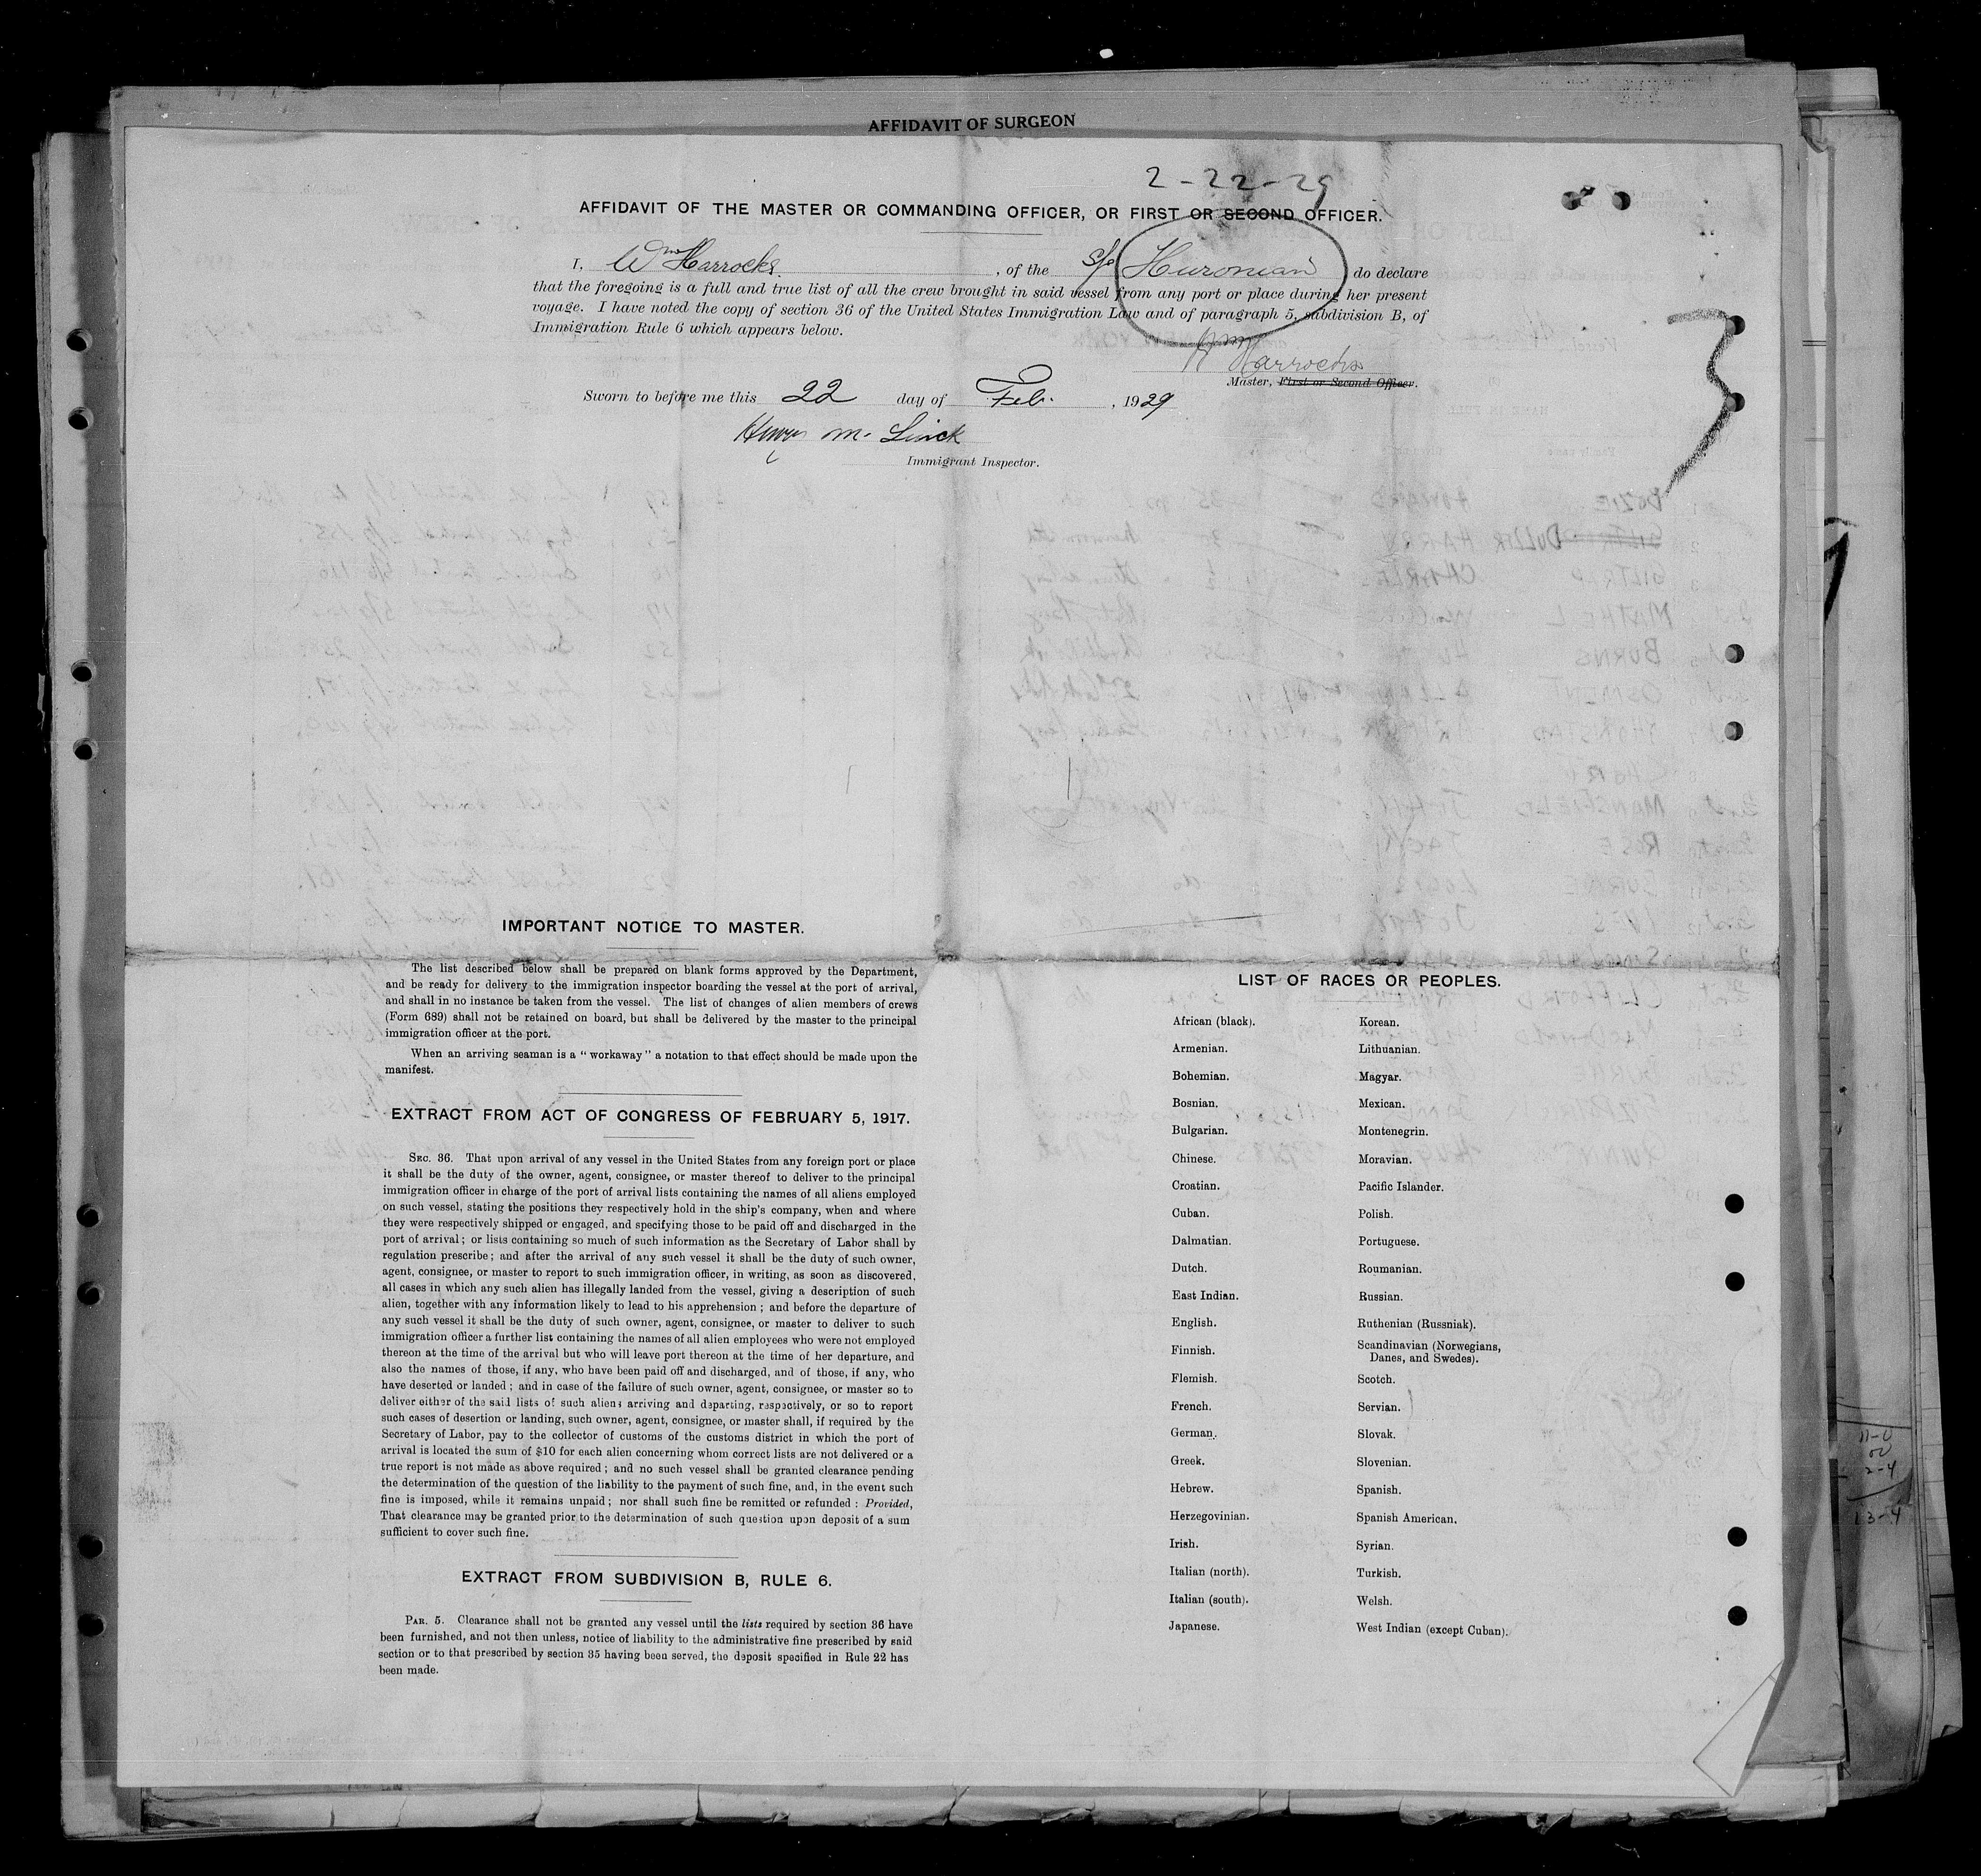 AFFIDAVIT OF SURGEON
2-22-29
AFFIDAVIT OF THE MASTER OR COMMANDING OFFICER, OR FIRST OR SECOND OFFICER.
I, Wm Harrocks, of the S/S Huronian do declare
that the foregoing is a full and true list of all the crew brought in said vessel from any port or place during her present
voyage. I have noted the copy of section 36 of the United States Immigration Law and of paragraph 5, subdivision B, of
Immigration Rule 6 which appears below.
Wm Harrocks
Master, First or Second Officer.
3
Sworn to before me this 22 day of Feb., 1929
Henry M. Linck
Immigrant Inspector.
IMPORTANT NOTICE TO MASTER.
The list described below shall be prepared on blank forms approved by the Department,
and be ready for delivery to the immigration inspector boarding the vessel at the port of arrival,
and shall in no instance be taken from the vessel. The list of changes of alien members of crews
(Form 689) shall not be retained on board, but shall be delivered by the master to the principal
immigration officer at the port.
When an arriving seaman is a "workaway" a notation to that effect should be made upon the
manifest.
EXTRACT FROM ACT OF CONGRESS OF FEBRUARY 5, 1917.
SEC. 36. That upon arrival of any vessel in the United States from any foreign port or place
it shall be the duty of the owner, agent, consignee, or master thereof to deliver to the principal
immigration officer in charge of the port of arrival lists containing the names of all aliens employed
on such vessel, stating the positions they respectively hold in the ship's company, when and where
they were respectively shipped or engaged, and specifying those to be paid off and discharged in the
port of arrival; or lists containing so much of such information as the Secretary of Labor shall by
regulation prescribe; and after the arrival of any such vessel it shall be the duty of such owner,
agent, consignee, or master to report to such immigration officer, in writing, as soon as discovered,
all cases in which any such alien has illegally landed from the vessel, giving a description of such
alien, together with any information likely to lead to his apprehension; and before the departure of
any such vessel it shall be the duty of such owner, agent, consignee, or master to deliver to such
immigration officer a further list containing the names of all alien employees who were not employed
thereon at the time of the arrival but who will leave port thereon at the time of her departure, and
also the names of those, if any, who have been paid off and discharged, and of those, if any, who
have deserted or landed; and in case of the failure of such owner, agent, consignee, or master so to
deliver either of the said lists of such aliens arriving and departing, respectively, or so to report
such cases of desertion or landing, such owner, agent, consignee, or master shall, if required by the
Secretary of Labor, pay to the collector of customs of the customs district in which the port of
arrival is located the sum of $10 for each alien concerning whom correct lists are not delivered or a
true report is not made as above required; and no such vessel shall be granted clearance pending
the determination of the question of the liability to the payment of such fine, and, in the event such
fine is imposed, while it remains unpaid; nor shall such fine be remitted or refunded: Provided,
That clearance may be granted prior to the determination of such question upon deposit of a sum
sufficient to cover such fine.
EXTRACT FROM SUBDIVISION B, RULE 6.
PAR. 5. Clearance shall not be granted any vessel until the lists required by section 36 have
been furnished, and not then unless, notice of liability to the administrative fine prescribed by said
section or to that prescribed by section 35 having been served, the deposit specified in Rule 22 has
been made.
LIST OF RACES OR PEOPLES.
African (black).
Armenian.
Bohemian.
Bosnian.
Bulgarian.
Chinese.
Croatian.
Cuban.
Dalmatian.
Dutch.
East Indian.
English.
Finnish.
Flemish.
French.
German.
Greek.
Hebrew.
Herzegovinian.
Irish.
Italian (north).
Italian (south).
Japanese.
Korean.
Lithuanian.
Magyar.
Mexican.
Montenegrin.
Moravian.
Pacific Islander.
Polish.
Portuguese.
Roumanian.
Russian.
Ruthenian (Russniak).
Scandinavian (Norwegians,
Danes, and Swedes).
Scotch.
Servian.
Slovak.
Slovenian.
Spanish.
Spanish American.
Syrian.
Turkish.
Welsh.
West Indian (except Cuban).
11-0
2-4
13-4